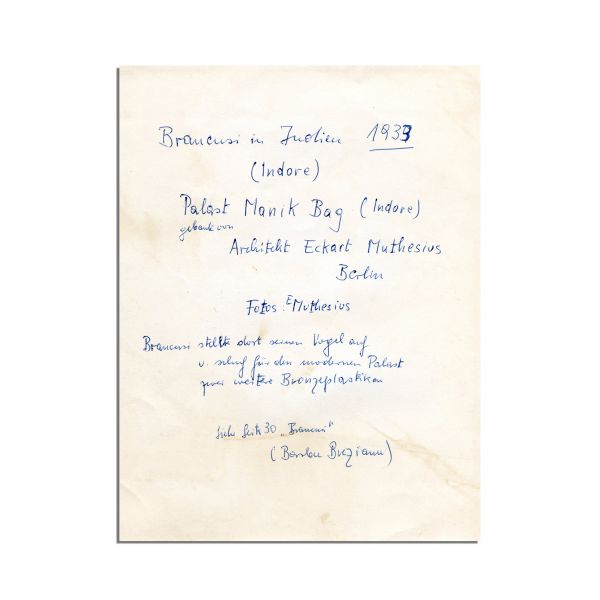 Brancusi in Indien 1933
(Indore)
Palast Manik Bag (Indore)
gebaut von
Architekt Eckart Muthesius
Berlin
Fotos: E Muthesius
Brancusi stellte dort seinen Vogel auf
u. schuf für den modernen Palast
zwei weitere Bronzeplastiken
siehe Seite 30 „Brancusi"
(Barbu Brezianu)